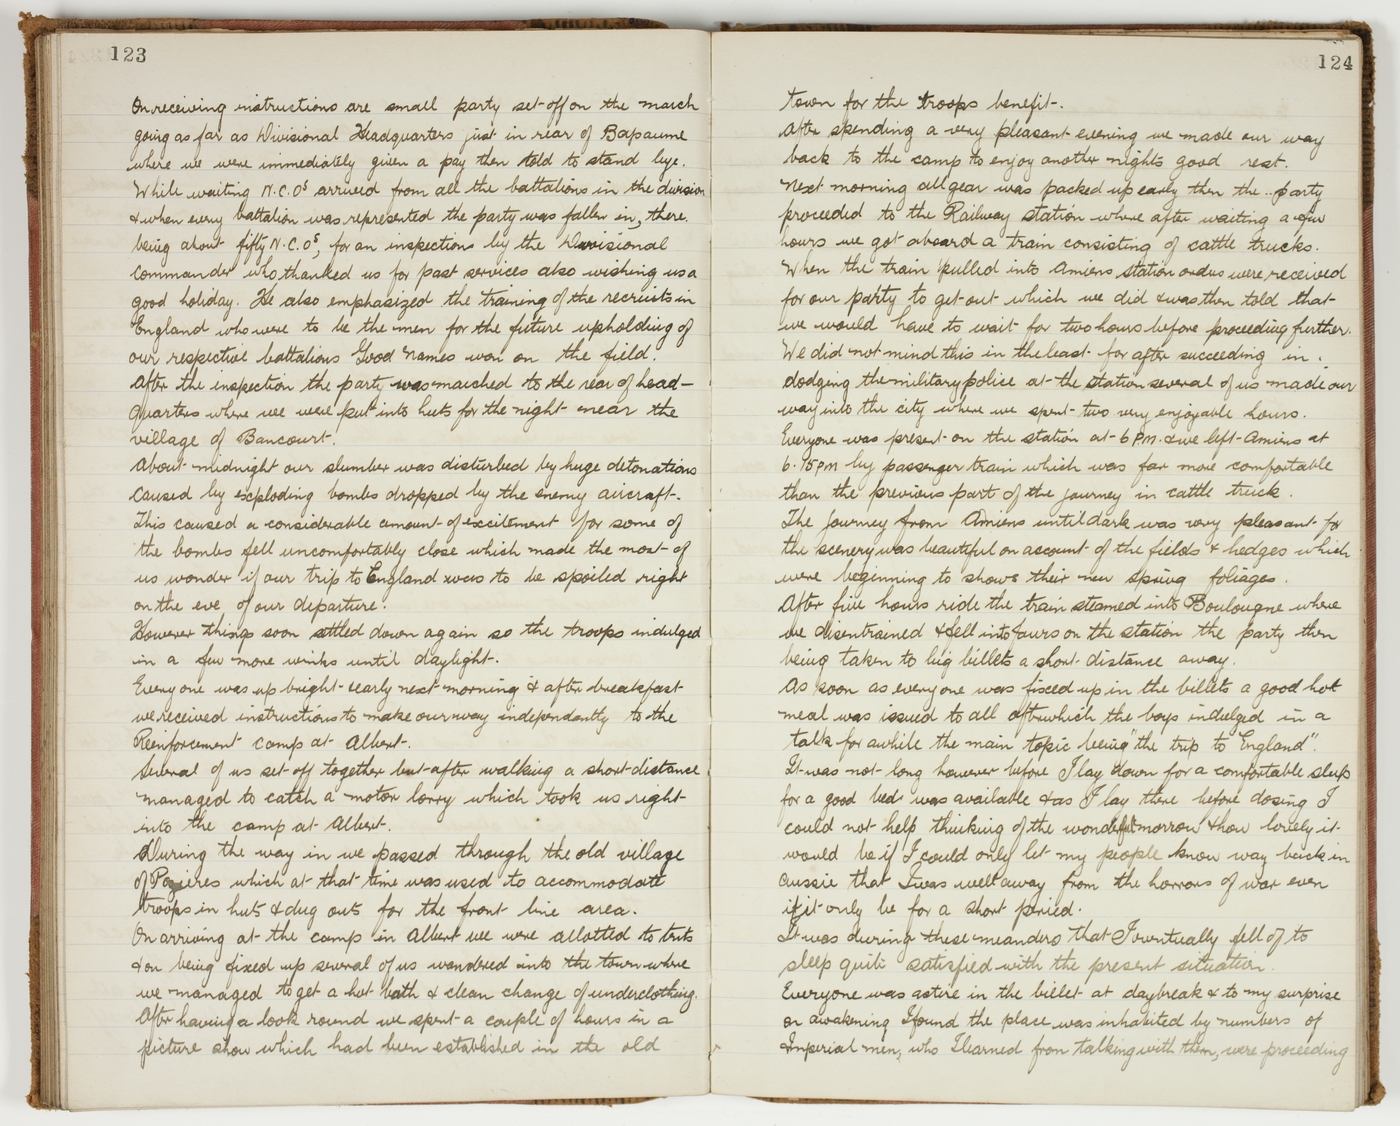 123
On receiving instructions are small party set off on the march
going as far as Divisional Headquarters just in rear of Bapaume
where we were immediately given a pay then told to stand bye.
While waiting N.C.Os arrived from all the battalions in the division
& when every battalion was represented the party was fallen in, there
being about fifty N.C.Os, for an inspection by the Divisional
Commander who, thanked us for past services also wishing us a
good holiday. He also emphasized the training of the recruits in
England who were to be the men for the future upholding of
our respective battalions Good Names won on the field.
After the inspection the party was marched to the rear of head-
quarters where we were put into huts for the night near the
village of Bancourt.
About midnight our slumber was disturbed by huge detonations
caused by exploding bombs dropped by the enemy aircraft.
This caused a considerable amount of excitement for some of
the bombs fell uncomfortably close which made the most of
us wonder if our trip to England was to be spoiled right
on the eve of our departure.
However things soon settled down again so the troops indulged
in a few more winks until daylight.
Everyone was up bright early next morning & after breakfast
we received instructions to make our way independantly to the
Reinforcement camp at Albert.
Several of us set off together but after walking a short distance
managed to catch a motor lorry which took us right
into the camp at Albert.
During the way in we passed through the old village
of Pozieres which at that time was used to accommodate
troops in huts & dug outs for the front line area.
On arriving at the camp in Albert we were allotted to tents
& on being fixed up several of us wandered into the town where
we managed to get a hot bath & clean change of underclothing.
After having a look round we spent a couple of hours in a
picture show which had been established in the old
124
town for the troops benefit.
After spending a very pleasant evening we made our way
back to the camp to enjoy another nights good rest.
Next morning all gear was packed up early then the party
proceeded to the Railway station where after waiting a few
hours we got aboard a train consisting of cattle trucks.
When the train pulled into Amiens station orders were received
for our party to get out which we did & was then told that
we would have to wait for two hours before proceeding further.
We did not mind this in the least for after succeeding in
dodging the military police at the station several of us made our
way into the city where we spent two very enjoyable hours.
Everyone was present on the station at 6 P.M. & we left Amiens at
6.15 PM by passenger train which was far more comfortable
than the previous part of the journey in cattle truck.
The journey from Amiens until dark was very pleasant for
the scenery was beautiful on account of the fields & hedges which
were beginning to shows their new spring foliages.
After five hours ride the train steamed into Boulougne where
we disentrained & fell into fours on the station the party then
being taken to big billets a short distance away.
As soon as everyone was fixed up in the billets a good hot
meal was issued to all after which the boys indulged in a
talk for awhile the main topic being "the trip to England".
It was not long however before I lay down for a comfortable sleep
for a good bed was available & as I lay there before dosing I
could not help thinking of the wonderful morrow & how lovely it
would be if I could only let my people know way back in
Aussie that I was well away from the horrors of war even
if it only be for a short period.
It was during these meanders that I eventually fell off to
sleep quite satisfied with the present situation.
Everyone was astire in the billet at daybreak & to my surprise
on awakening I found the place was inhabited by numbers of
Imperial men, who I learned from talking with them, were proceeding